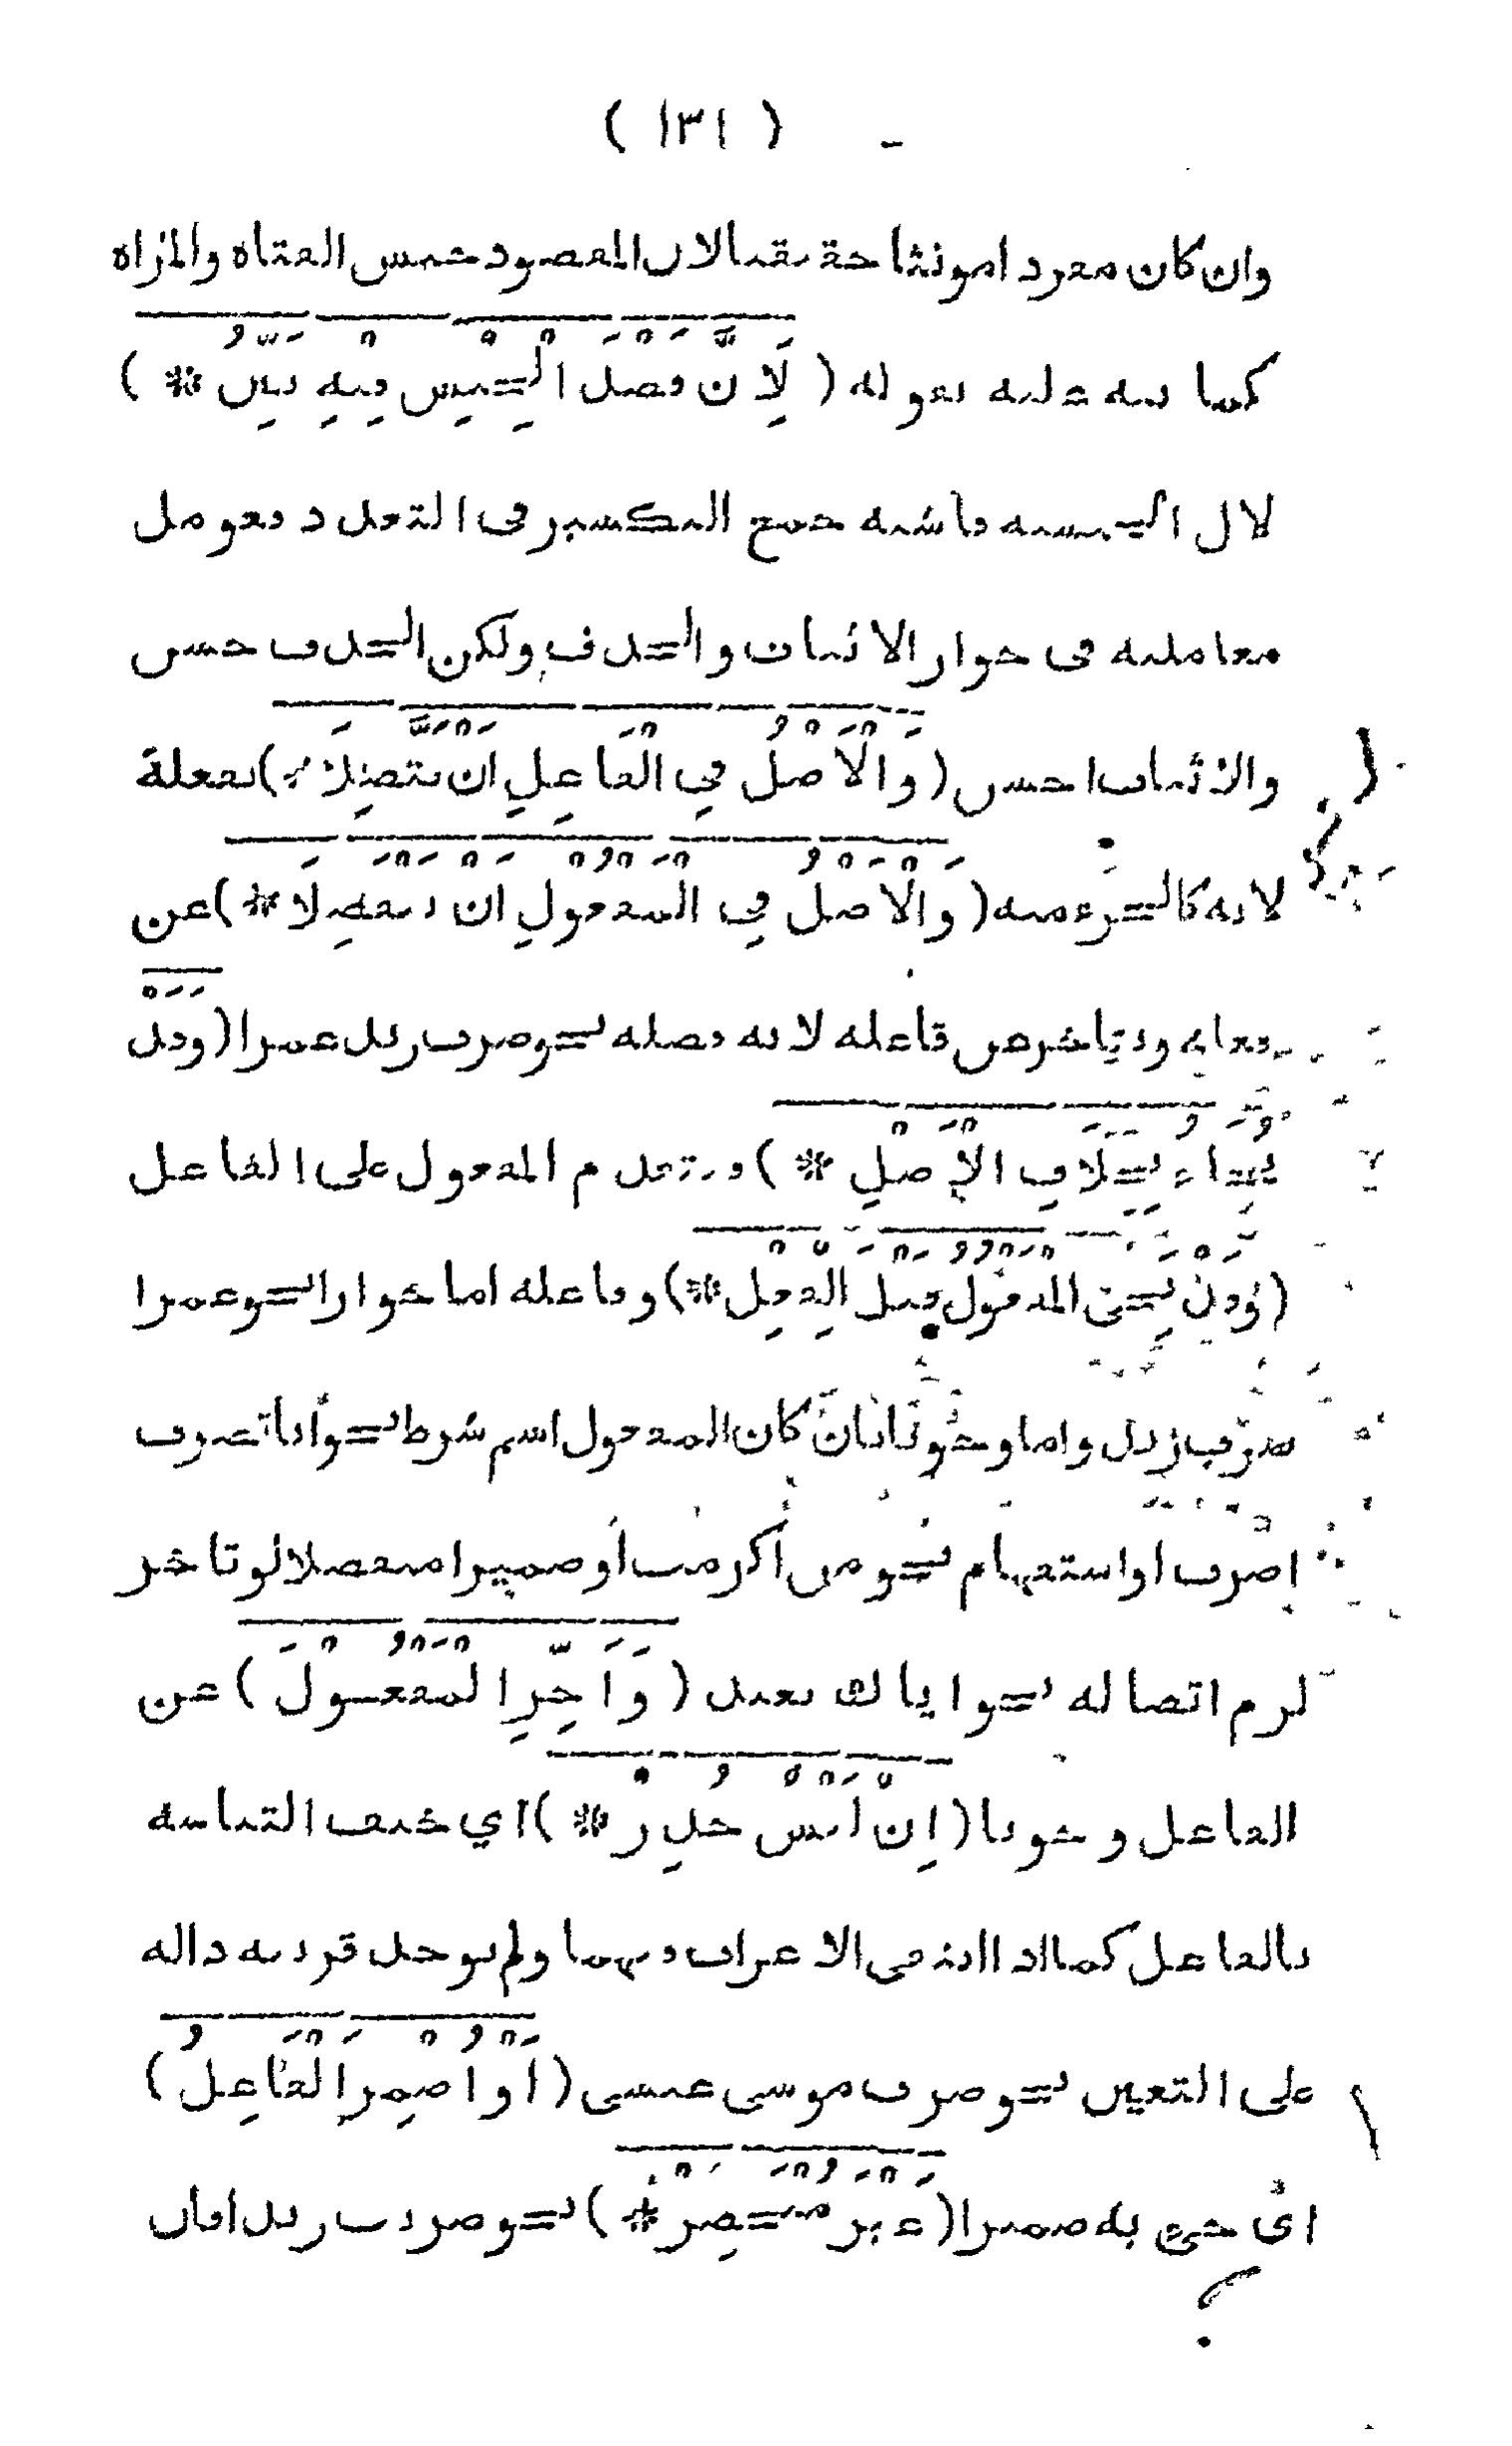 ( ١٣١ )
وان كان مفردا مونثا حقيقيا لان المقصود جنس الفتاة والمراة
كما نبه عليه بقوله ( لِأَنَّ قَصْدَ الْجِنْسِ فِيهِ بَيِّنُ * )
لان الجنسية فاشبه جمع التكسير في التعدد فعومل
معاملته في جواز الاثبات والحذف ولكن الحذف حسن
والاثبات احسن ( وَالْأَصْلُ فِي الْفَاعِلِ أَنْ يَتَّصِلَا * ) بفعله
لانه كالجزء منه ( وَالْأَصْلُ فِي الْمَفْعُولِ أَنْ يَنْفَصِلَا * ) عن
فعله ويتاخر عن فاعله لانه فضلة نحو ضرب زيد عمرا ( وَقَدْ
يُجَاءُ بِخِلَافِ الْأَصْلِ * ) فيتقدم المفعول على الفاعل
( وَقَدْ يَجِي الْمَفْعُولُ قَبْلَ الْفِعْلِ * ) وفاعله اما جوازا نحو عمرا
ضرب زيد واما وجوبا بان كان المفعول اسم شرط نحو أيا تضرب
اضرب او استفهام نحو من أكرمت أو ضميرا منفصلا لو تاخر
لزم اتصاله نحو اياك نعبد ( وَأَخِّرِ الْمَفْعُولَ ) عن
الفاعل وجوبا ( إِنْ لَبْسٌ حُذِرْ * ) أي خيف التباسه
بالفاعل كما اذا انتفى الاعراب فيهما ولم يوجد قرينة دالة
على التعيين نحو ضرب موسى عيسى ( أَوْ أُضْمِرَ الْفَاعِلُ )
اى جىء به ضميرا ( غَيْرَ مُنْحَصِرْ * ) نحو ضربت زيدا فان